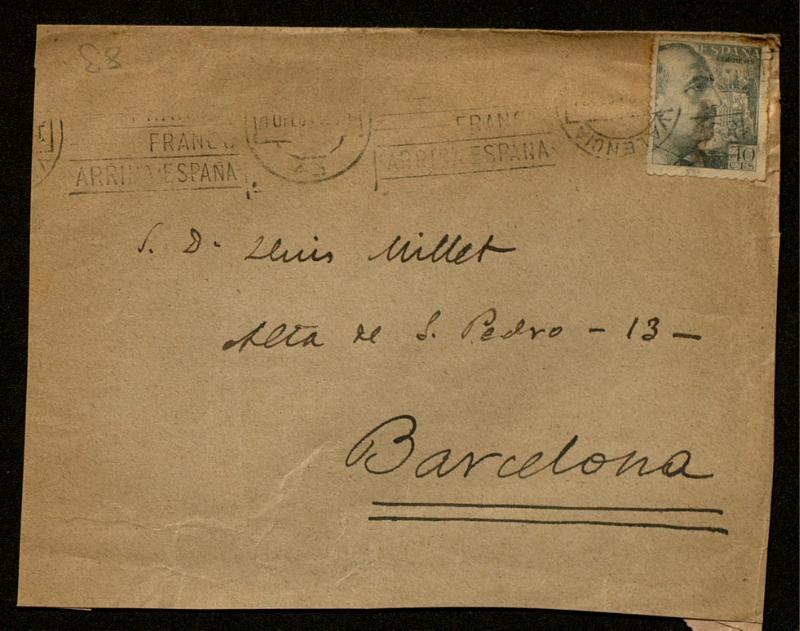 83
ESPAÑA
CORREOS
40
CTS
FRANCO
ARRIBA ESPAÑA
FRANCO
ARRIBA ESPAÑA
VALENCIA
S. D. Lluis Millet
Alta de S. Pedro - 13 -
Barcelona